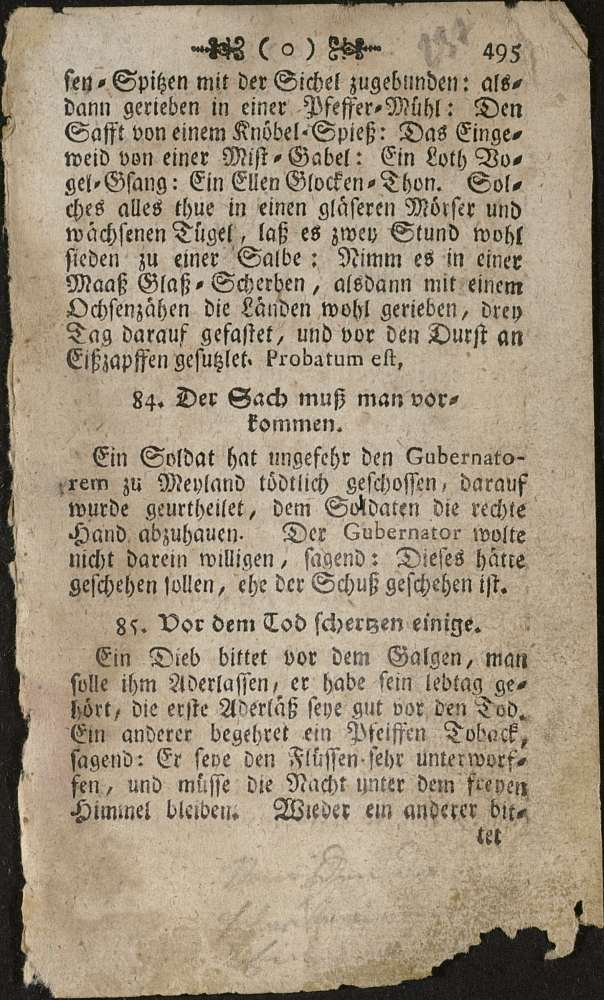 ( o ) 495
sen-Spitzen mit der Sichel zugebunden: als-
dann gerieben in einer Pfeffer-Mühl: Den
Safft von einem Knöbel-Spieß: Das Einge-
weid von einer Mist-Gabel: Ein Loth Vo-
gel-Gsang: Ein Ellen Glocken-Thon. Sol-
ches alles thue in einen gläseren Mörser und
wächsenen Tügel, laß es zwey Stund wohl
sieden zu einer Salbe: Nimm es in einer
Maaß Glaß-Scherben, alsdann mit einem
Ochsenzähen die Länden wohl gerieben, drey
Tag darauf gefastet, und vor den Durst an
Eißzapffen gesutzlet. Probatum est,
84. Der Sach muß man vor-
kommen.
Ein Soldat hat ungefehr den Gubernato-
rem zu Meyland tödtlich geschossen, darauf
wurde geurtheilet, dem Soldaten die rechte
Hand abzuhauen. Der Gubernator wolte
nicht darein willigen, sagend: Dieses hätte
geschehen sollen, ehe der Schuß geschehen ist.
85. Vor dem Tod schertzen einige.
Ein Dieb bittet vor dem Galgen, man
solle ihm Aderlassen, er habe sein lebtag ge-
hört, die erste Aderläß seye gut vor den Tod.
Ein anderer begehret ein Pfeiffen Toback,
sagend: Er seye den Flüssen sehr unterworf-
fen, und müsse die Nacht unter dem freyen
Himmel bleiben. Wieder ein anderer bit-
tet